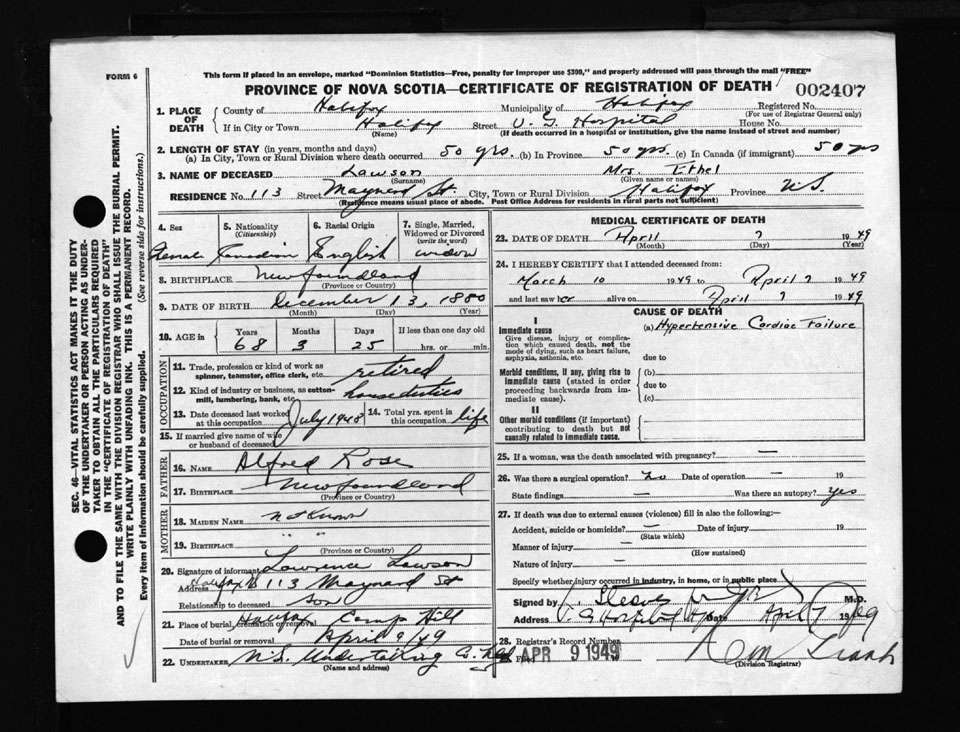 FORM 6
This form if placed in an envelope, marked "Dominion Statistics—Free, penalty for improper use $300," and properly addressed will pass through the mail "FREE"
PROVINCE OF NOVA SCOTIA—CERTIFICATE OF REGISTRATION OF DEATH
002407
1. PLACE OF DEATH
County of Halifax Municipality of Halifax Registered No.
(For use of Registrar General only)
If in City or Town Halifax Street V. G. Hospital House No.
(Name) (If death occurred in a hospital or institution, give the name instead of street and number)
2. LENGTH OF STAY (in years, months and days)
(a) In City, Town or Rural Division where death occurred 50 yrs. (b) In Province 50 yrs. (c) In Canada (if immigrant) 50 yrs
3. NAME OF DECEASED Lawson Mrs. Ethel
(Surname) (Given name or names)
RESIDENCE No. 113 Street Maynard St. City, Town or Rural Division Halifax Province N.S.
(Residence means usual place of abode. Post Office Address for residents in rural parts not sufficient)
4. Sex Female
5. Nationality (Citizenship) Canadian
6. Racial Origin English
7. Single, Married, Widowed or Divorced (write the word) widow
8. BIRTHPLACE Newfoundland
(Province or Country)
9. DATE OF BIRTH December 13, 1880
(Month) (Day) (Year)
10. AGE in Years Months Days If less than one day old
68 3 25 hrs. or min.
OCCUPATION
11. Trade, profession or kind of work as spinner, teamster, office clerk, etc. retired
12. Kind of industry or business, as cotton-mill, lumbering, bank, etc. house duties
13. Date deceased last worked at this occupation July 1948
14. Total yrs. spent in this occupation life
15. If married give name of wife or husband of deceased
FATHER
16. NAME Alfred Rose
17. BIRTHPLACE Newfoundland
(Province or Country)
MOTHER
18. MAIDEN NAME not known
19. BIRTHPLACE " "
(Province or Country)
20. Signature of informant Lawrence Lawson
Address Halifax 113 Maynard St
Relationship to deceased son
21. Place of burial, cremation or removal Halifax Camp Hill
Date of burial or removal April 9/49
22. UNDERTAKER N.S. Undertaking Co. Ltd
(Name and address)
MEDICAL CERTIFICATE OF DEATH
23. DATE OF DEATH April 7 1949
(Month) (Day) (Year)
24. I HEREBY CERTIFY that I attended deceased from:
March 10 1949 to April 7 1949
and last saw her alive on April 7 1949
CAUSE OF DEATH
I
Immediate cause (a) Hypertensive Cardiac Failure
Give disease, injury or complication which caused death, not the mode of dying, such as heart failure, asphyxia, asthenia, etc.
due to
Morbid conditions, if any, giving rise to immediate cause (stated in order proceeding backwards from immediate cause).
(b)
due to
(c)
II
Other morbid conditions (if important) contributing to death but not causally related to immediate cause.
25. If a woman, was the death associated with pregnancy? —
26. Was there a surgical operation? No Date of operation — 19
State findings — Was there an autopsy? Yes
27. If death was due to external causes (violence) fill in also the following:—
Accident, suicide or homicide? — Date of injury 19
(State which)
Manner of injury —
(How sustained)
Nature of injury —
Specify whether injury occurred in industry, in home, or in public place
Signed by M.D.
Address V. G Hospital Date April 7 1949
28. Registrar's Record Number
Filed APR 9 1949
(Division Registrar)
SEC. 46—VITAL STATISTICS ACT MAKES IT THE DUTY
OF THE UNDERTAKER OR PERSON ACTING AS UNDER-
TAKER TO OBTAIN ALL THE PARTICULARS REQUIRED
IN THE "CERTIFICATE OF REGISTRATION OF DEATH"
AND TO FILE THE SAME WITH THE DIVISION REGISTRAR WHO SHALL ISSUE THE BURIAL PERMIT.
WRITE PLAINLY WITH UNFADING INK. THIS IS A PERMANENT RECORD.
Every item of information should be carefully supplied. (See reverse side for instructions.)